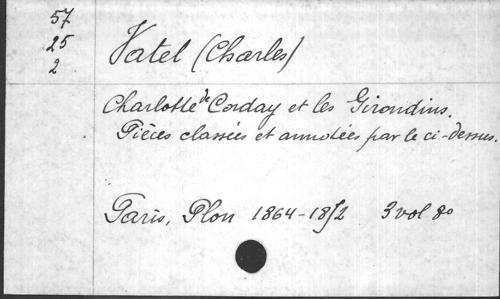 57
25
2
Vatel (Charles)
Charlotte de Corday et les Girondins.
Pièces classées et annotées par le ci-dessus.
Paris, Plon 1864-1872 3 vol 8o